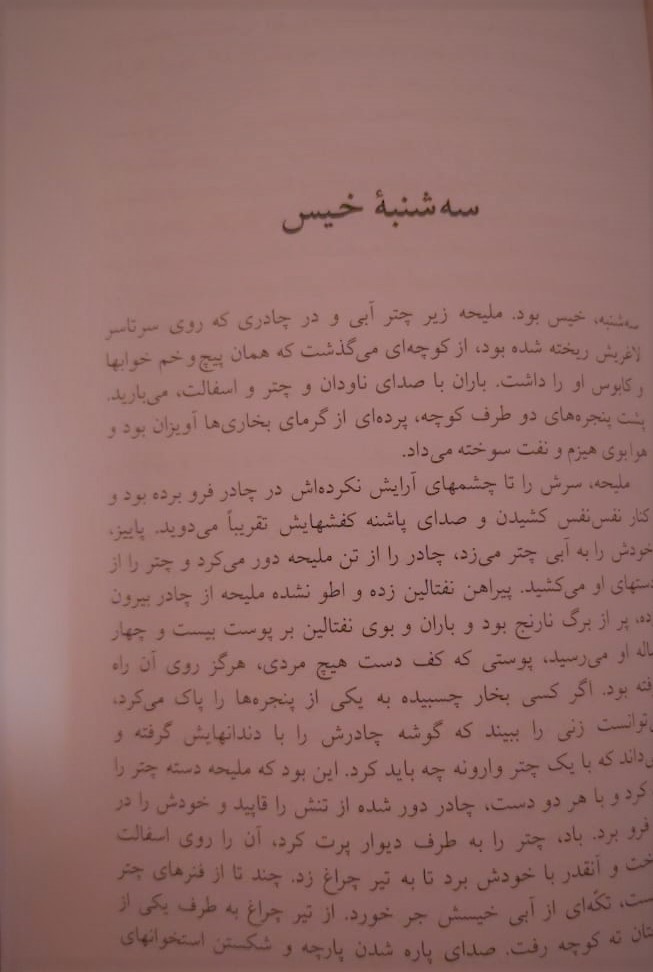 سه‌شنبهٔ خیس
سه‌شنبه، خیس بود. ملیحه زیر چتر آبی و در چادری که روی سرتاسر
لاغریش ریخته شده بود، از کوچه‌ای می‌گذشت که همان پیچ و خم خوابها
و کابوس او را داشت. باران با صدای ناودان و چتر و اسفالت، می‌بارید.
پشت پنجره‌های دو طرف کوچه، پرده‌ای از گرمای بخاری‌ها آویزان بود و
هوا بوی هیزم و نفت سوخته می‌داد.
ملیحه، سرش را تا چشمهای آرایش نکرده‌اش در چادر فرو برده بود و
کنار نفس‌نفس کشیدن و صدای پاشنه کفشهایش تقریباً می‌دوید. پاییز،
خودش را به آبی چتر می‌زد، چادر را از تن ملیحه دور می‌کرد و چتر را از
دستهای او می‌کشید. پیراهن نفتالین زده و اطو نشده ملیحه از چادر بیرون
پر از برگ نارنج بود و باران و بوی نفتالین بر پوست بیست و چهار
او می‌رسید، پوستی که کف دست هیچ مردی، هرگز روی آن راه
بود. اگر کسی بخار چسبیده به یکی از پنجره‌ها را پاک می‌کرد،
توانست زنی را ببیند که گوشه چادرش را با دندانهایش گرفته و
که با یک چتر وارونه چه باید کرد. این بود که ملیحه دسته چتر را
کرد و با هر دو دست، چادر دور شده از تنش را قاپید و خودش را در
فرو برد. باد، چتر را به طرف دیوار پرت کرد، آن را روی اسفالت
و آنقدر با خودش برد تا به تیر چراغ زد. چند تا از فنرهای چتر
تکّه‌ای از آبی خیسش جر خورد. از تیر چراغ به طرف یکی از
ته کوچه رفت. صدای پاره شدن پارچه و شکستن استخوانهای